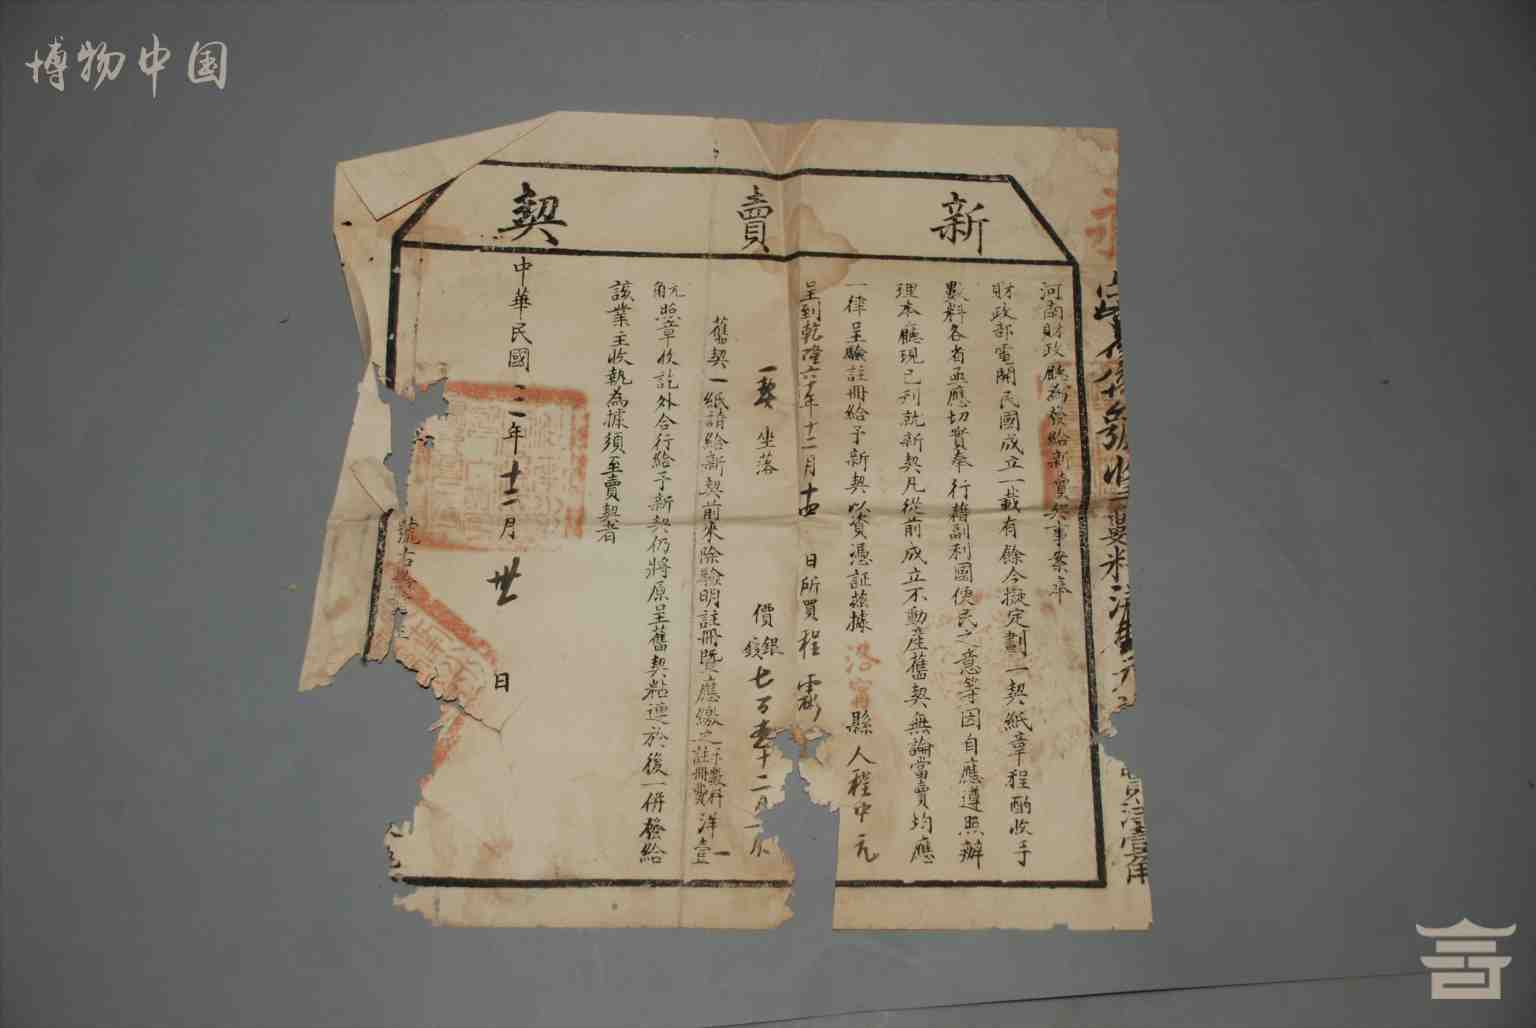 博物中国
新賣契
河南財政廳為發給新賣契事案奉
財政部電開民國成立一載有餘今擬定劃一契紙章程酌收手
數料各省亟應切實奉行藉副利國便民之意等因自應遵照辦
理本廳現已刋就新契凡從前成立不動產舊契無論當賣均應
一律呈驗註冊給予新契以資憑証茲據洛甯縣人程中元
呈到乾隆六十年十二月十四日所買程
坐落 價銀錢七百壹十二
舊契一紙請給新契前來除驗明註冊暨應繳之手數料註冊費洋壹一
元角照章收訖外合行給予新契仍將原呈舊契粘連於後一併發給
該業主收執為據須至賣契者
中華民國二年十二月卅日
號右